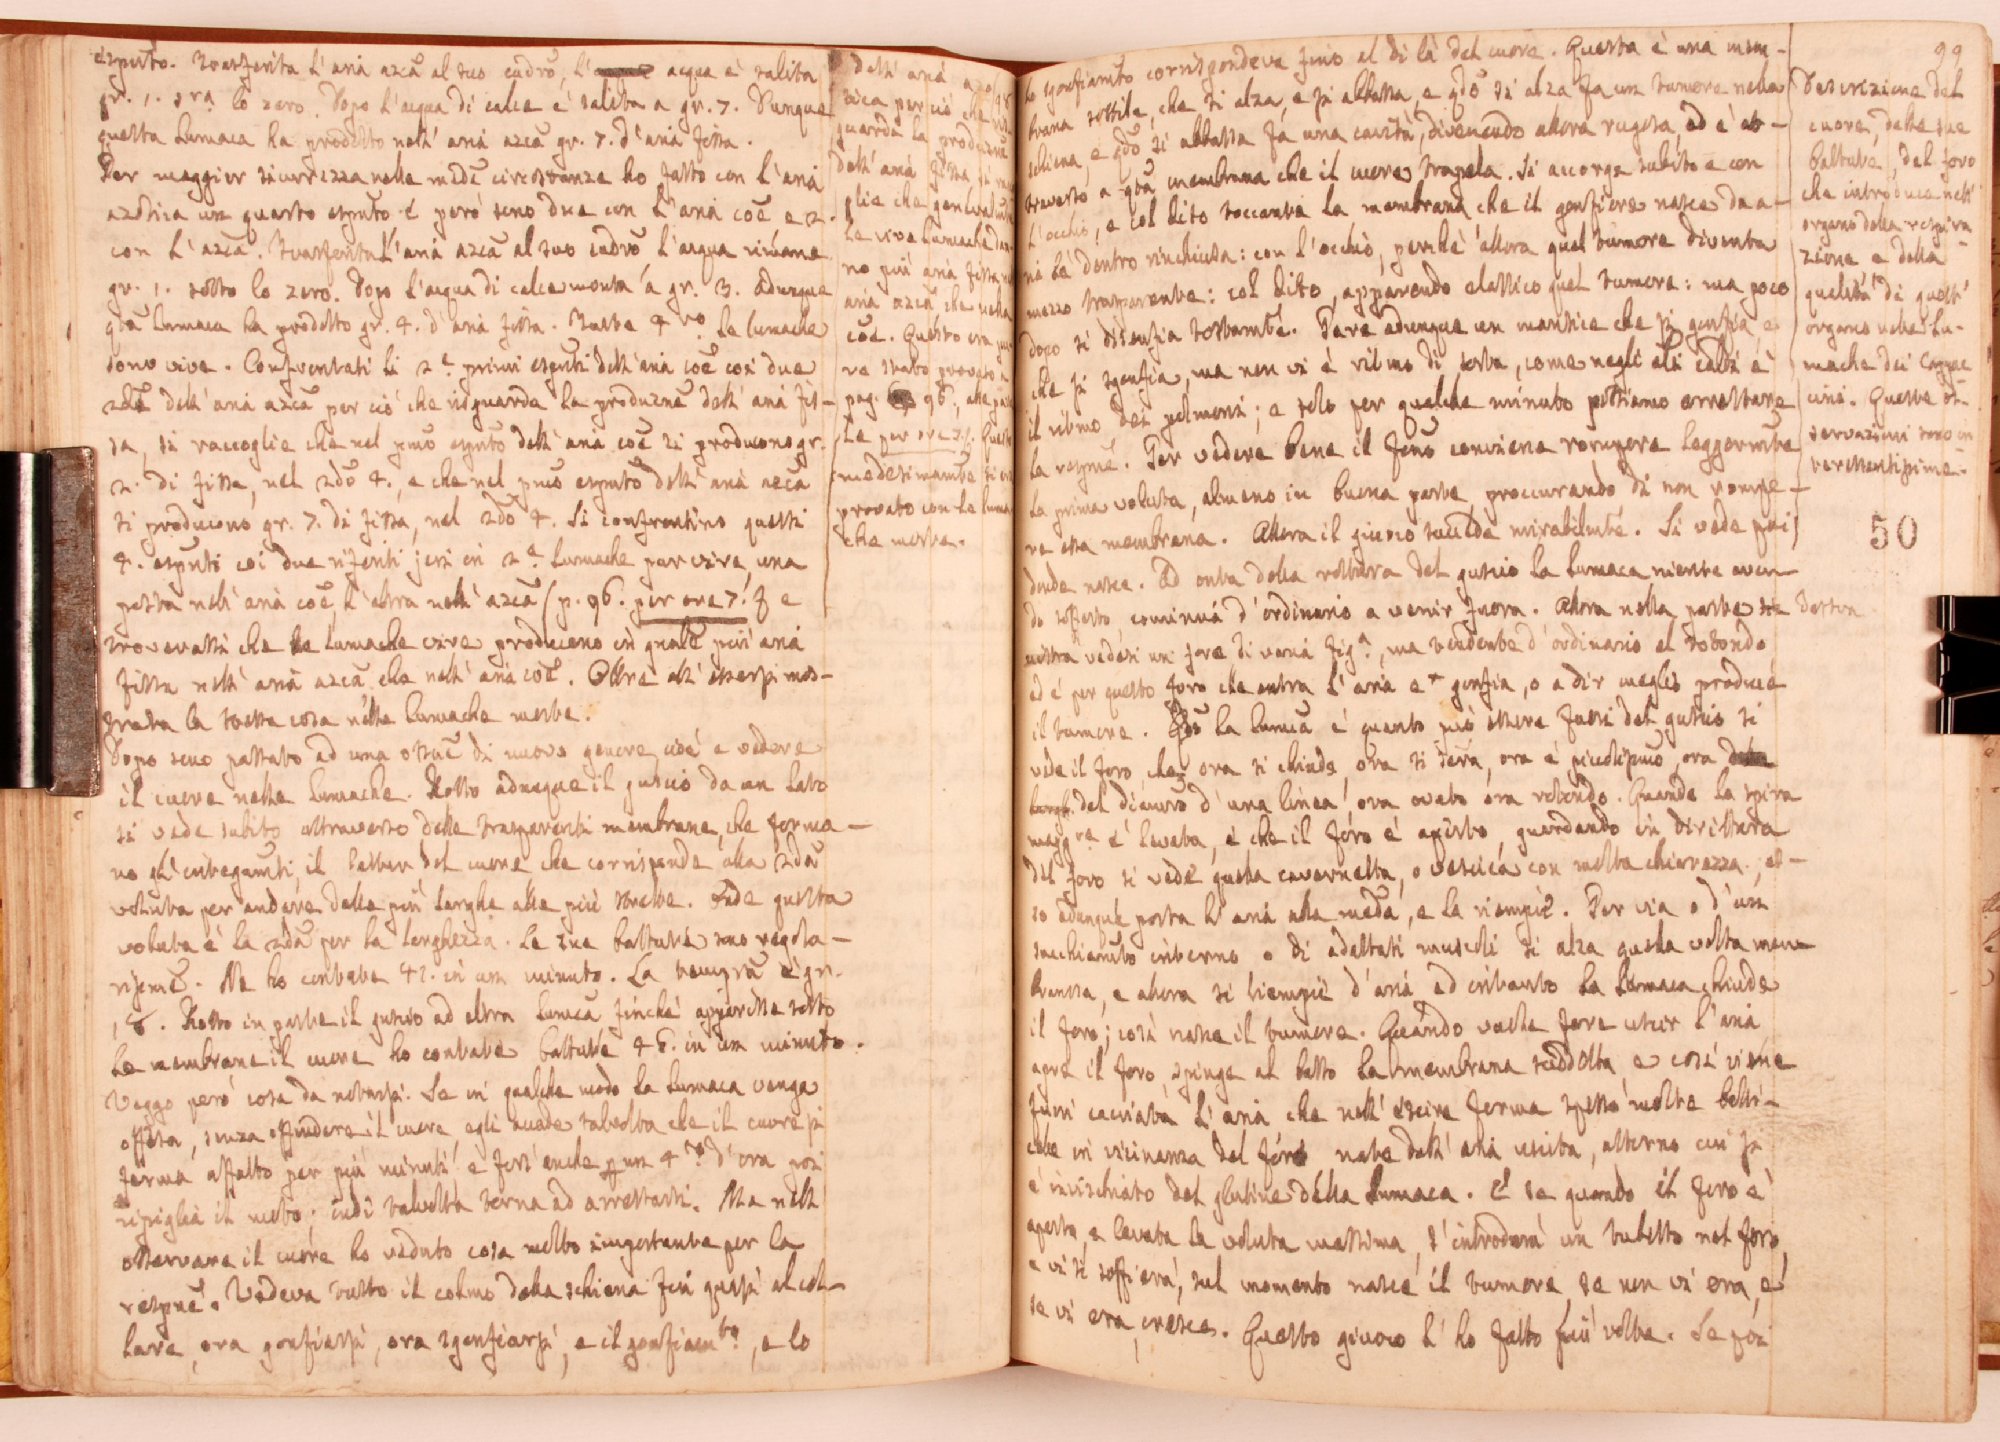 esptto. Trasferita l'aria azca al suo cadro, l' acqua è salita
gr. 1. sra lo zero. Dopo l'acqua di calce è salita a gr. 7. Dunque
questa lumaca ha prodotto nell'aria azca gr. 7. d'aria fissa.
Per maggior sicurezza nelle mede circostanze ho fatto con l'aria
azotica un quarto esptto e però sono due con l'aria coe e 2.
con l'azca. Trasferita l'aria azca al suo cadro l'acqua rimane
gr. 1. sotto lo zero. Dopo l'acqua di calce monta a gr. 3. Adunque
qta lumaca ha prodotto gr. 4. d'aria fissa. Tutte 4ro le lumache
sono vive. Confrontati li 2e primi esptti dell'aria coe coi due
2di dell'aria azca per ciò che risguarda la produzne dell'aria fis-
sa, si raccoglie che nel pmo esptto dell'aria coe si producono gr.
2. di fissa, nel 2do 4., e che nel pmo esptto dell'aria azca
si producono gr. 7. di fissa, nel 2do 4. Si confrontino questi
4. esptti coi due riferiti jeri in 2e lumache pur vive, una
posta nell'aria coe, l'altra nell'azca (p. 96. per ore 7.) e
troverassi che le lumache vive producono in gnale più aria
fissa nell'aria azca che nell'aria coe. Oltre all'essersi mos-
trata la stessa cosa nelle lumache morte.
Dopo sono passato ad una ossne di nuovo genere, cioè a vedere
il cuore nelle lumache. Rotto adunque il guscio da un lato
si vede subito attraverso delle trasparenti membrane, che forma-
no gl'integumti, il batter del cuore che corrisponde alla 2da
voluta per andare dalle più larghe alle più strette. Onde questa
voluta è la 2da per la larghezza. Le sue battute sono regola-
rissime. Ne ho contate 42. in un minuto. La tempra è gr.
18. Rotto in parte il guscio ad altra lumaca finchè apparisse sotto
le membrane il cuore ho contate battute 46. in un minuto.
Veggo però cosa da notarsi. Se in qualche modo la lumaca venga
offesa, senza offendere il cuore, egli accade talvolta che il cuore si
ferma affatto per più minuti e fors'anche per un 4to d'ora poi
ripiglia il moto; indi talvolta torna ad arrestarsi. Ma nell'
osservare il cuore ho veduto cosa molto importante per la
respne. Vedeva tutto il colmo della schiena fin quasi al col-
lare, ora gonfiarsi, ora sgonfiarsi, e il gonfiamto, e lo
dell'aria azo
tica per ciò che ris
guarda la produzne
dell'aria fissa si racco
glie che gentralmte
le vive lumache dan-
no più aria fissa nell'
aria azca che nella
coe. Questo era pu-
re stato provato a
pag. 96.
le per ore 7. Questo
medesimamte si era
provato con le luma
che morte.
99
lo sgonfiamto corrispondeva fino al di là del cuore. Questa è una mem-
brana sottile, che si alza, e si abbassa, e qdo si alza fa un tumore nella
schiena, e qdo si abbassa fa una cavità, divenendo allora rugosa, ed è at-
traverso a qta membrana che il cuore trapela. Si accorge subito e con
l'occhio, e col dito toccante la membrana che il gonfiore nasce da a-
ria là dentro rinchiusa: con l'occhio, perchè allora quel tumore diventa
mezzo trasparente: col dito, apparendo elastico quel tumore: ma poco
dopo si disenfia tostamte. Pare adunque un mantice che si gonfia, e
che si sgonfia, ma non vi è ritmo di sorta, come negli ali caldi è
il ritmo dei polmoni; e solo per qualche minuto possiamo arrestare
la respne. Per vedere bene il feno conviene rompere leggermte
la prima voluta, almeno in buona parte, proccurando di non rompe-
re essa membrana. Allora il giuoco succede mirabilmte. Si vede poi
donde nasce. Ad onta della rottura del guscio la lumaca niente aven-
do sofferto, continua d'ordinario a venir fuora. Allora nella parte destra
vedesi un foro di varia figa, ma tendente d'ordinario al rotondo
ed è per questo foro che entra l'aria e gonfia, o a dir meglio produce
il tumore. Qdo la lumaca è quanto può essere fuori del guscio si
vede il foro, che ora si chiude, ora si serra, ora è picciolissimo, ora
del diamtro d'una linea, ora ovato ora rotondo. Quando la spira
maggre è levata, e che il foro è aperto, guardando in dirittura
del foro si vede quella cavernetta, o vescica con molta chiarezza; es-
so adunque porta l'aria alla meda, e la riempie. Per via o d'un
succhiamto interno o di adattati muscoli si alza quella volta mem
branosa, e allora si riempie d'aria ed intanto la lumaca chiude
il foro; così nasce il tumore. Quando vuole fare uscir l'aria
apre il foro, spinge al basso la membrana suddetta e così viene
fuori cacciata l'aria che nell'uscire forma spesso molte bolli-
cole in vicinanza del foro nate dall'aria uscita, attorno cui si
è invischiato del glutine della lumaca. E se quando il foro è
aperto, e levata la voluta massima, s'introdurà un tubetto nel foro,
e vi si soffierà, sul momento nasce il tumore, se non vi era, e
se vi era, cresce. Questo giuoco l'ho fatto più volte. Se poi
Descrizione del
cuore, delle sue
battute, del foro
che introduce nell'
organo della respira
zione e della
qualità di quest'
organo nelle lu-
mache dei Cappuc
cini. Queste os-
servazioni sono in
teressantissime.
50